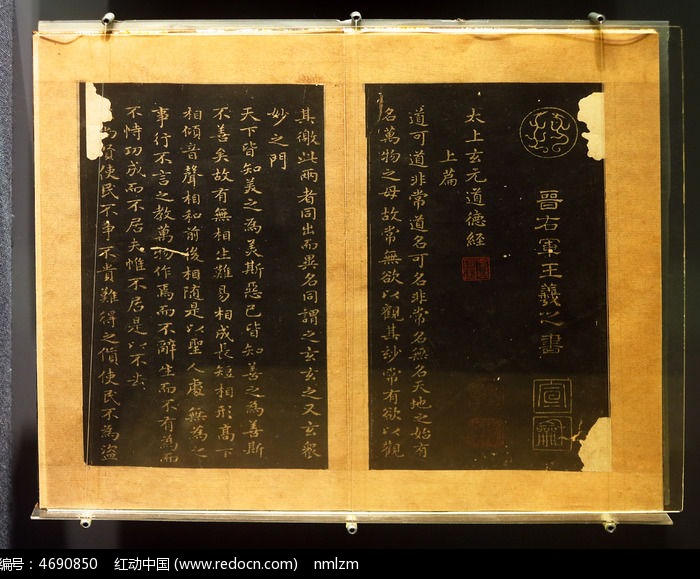 晉右軍王羲之書
太上玄元道德經
上篇
道可道非常道名可名非常名無名天地之始有
名萬物之母故常無欲以觀其妙常有欲以觀
其徼此兩者同出而異名同謂之玄玄之又玄衆
妙之門
天下皆知美之為美斯惡已皆知善之為善斯
不善矣故有無相生難易相成長短相形高下
相傾音聲相和前後相隨是以聖人處無為之
事行不言之教萬物作焉而不辭生而不有為而
不恃功成而不居夫惟不居是以不去
貨使民不爭不貴難得之貨使民不為盜
编号：4690850 红动中国 (www.redocn.com) nmlzm